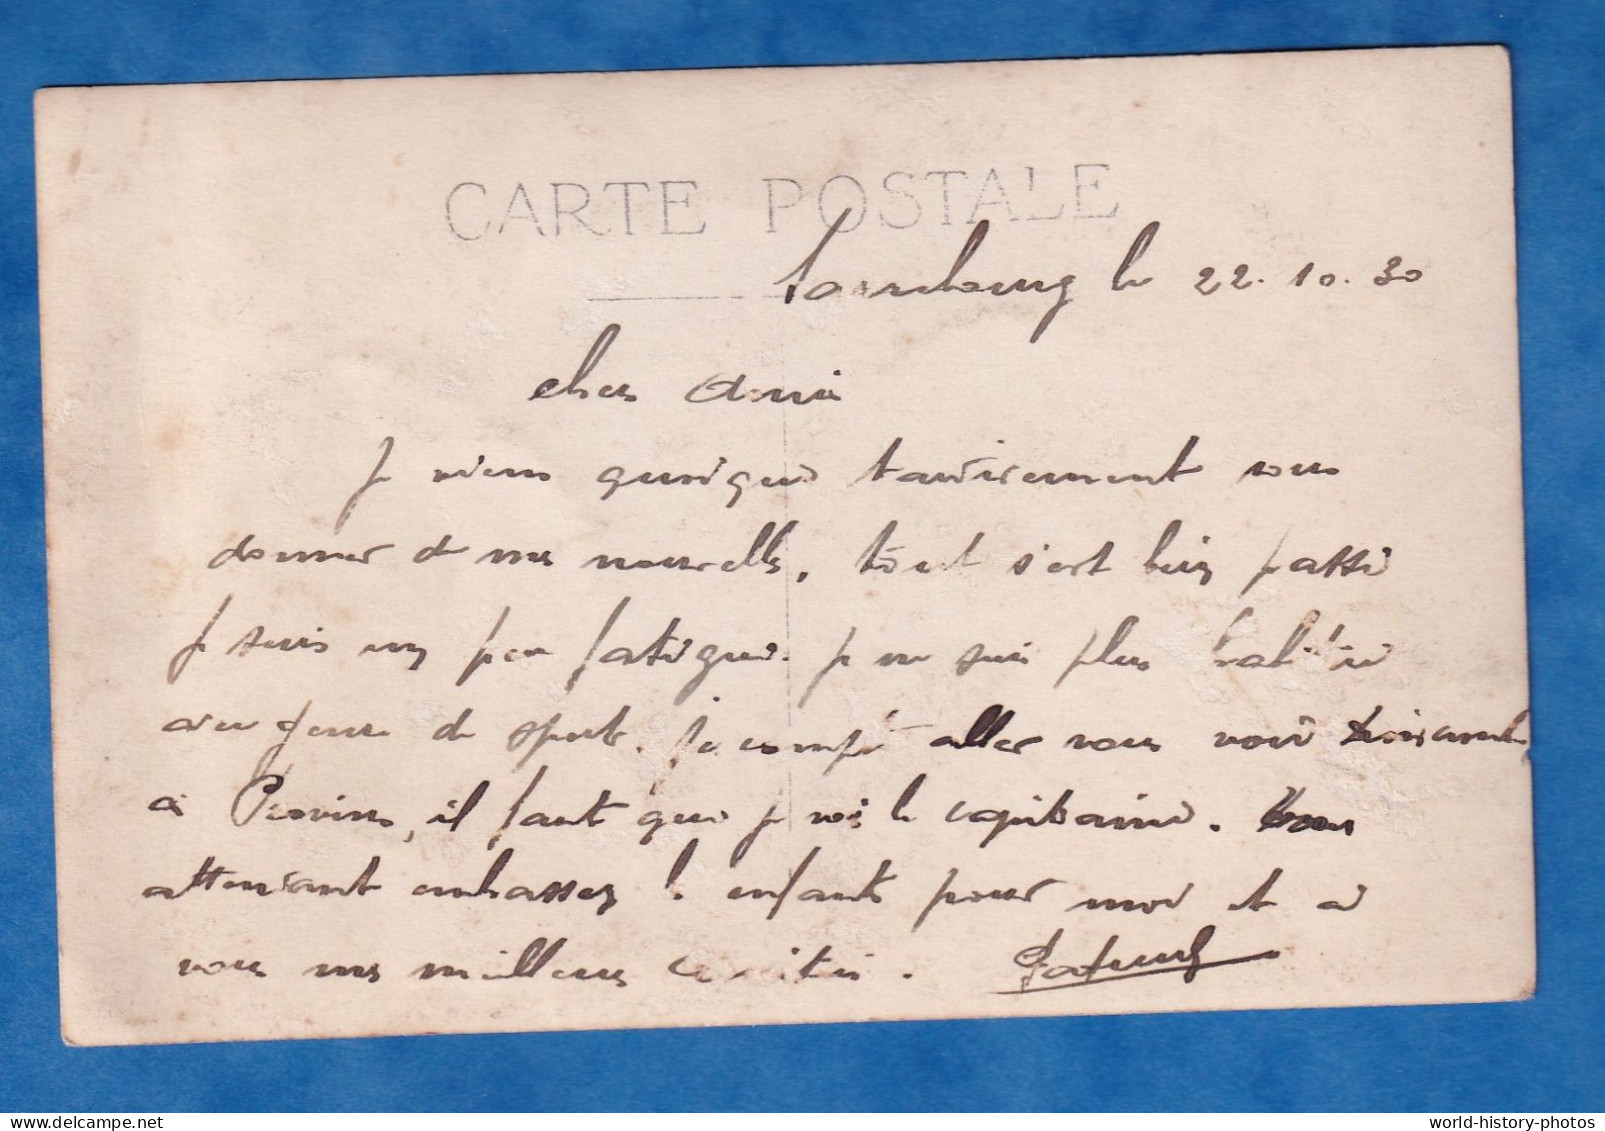 CARTE POSTALE
Sarrebourg le 22.10.30
chers Amis
Je viens quoique tardivement vous
donner de mes nouvelles, tout s'est bien passé
Je suis un peu fatigué. Je ne suis plus habitué
au genre de sport. Je compte aller vous voir
à Provins, il faut que je vois le capitaine. En
attendant embrassez les enfants pour moi et à
vous mes meilleurs amitiés.
world-history-photos